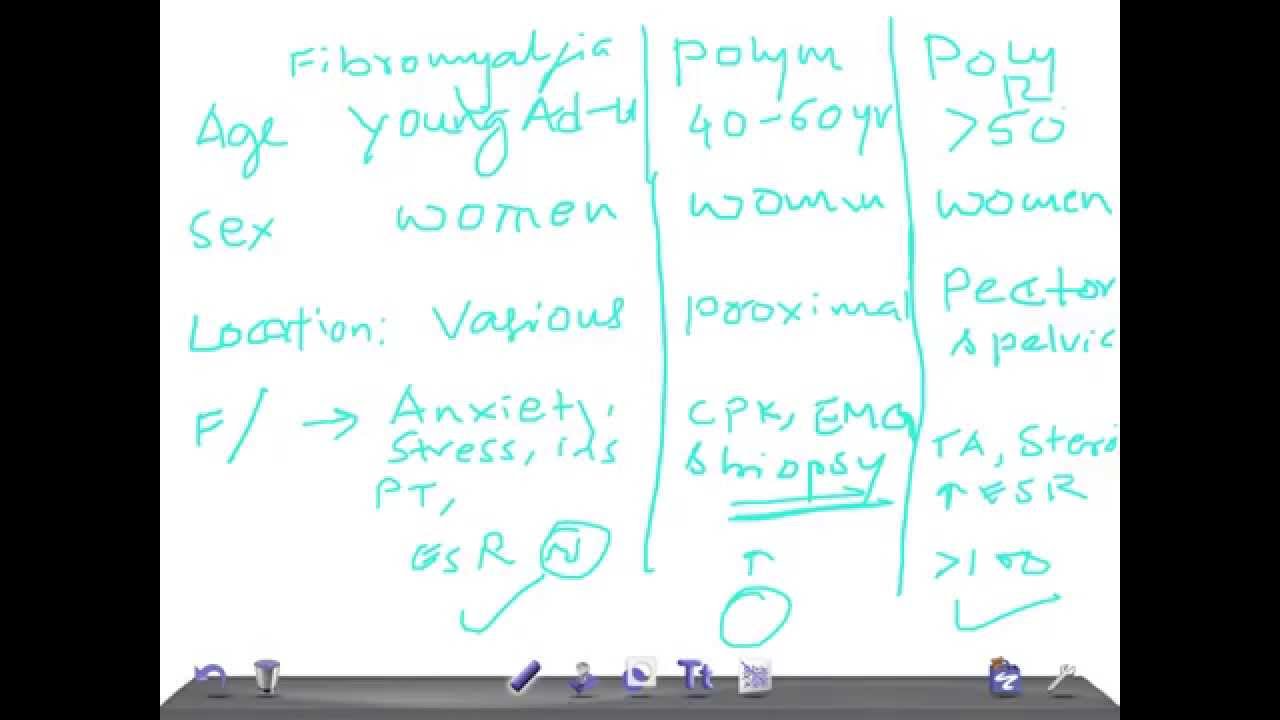 Fibromyaljia Polym Poly R
Age Young Ad-u 40-60yr >50
Sex women women women
Location: Various proximal Pector
& pelvic
F/ → Anxiety, CPK, EMG TA, Stero
Stress, ins & biopsy ↑ ESR
PT,
ESR N ↑ >100
Tt